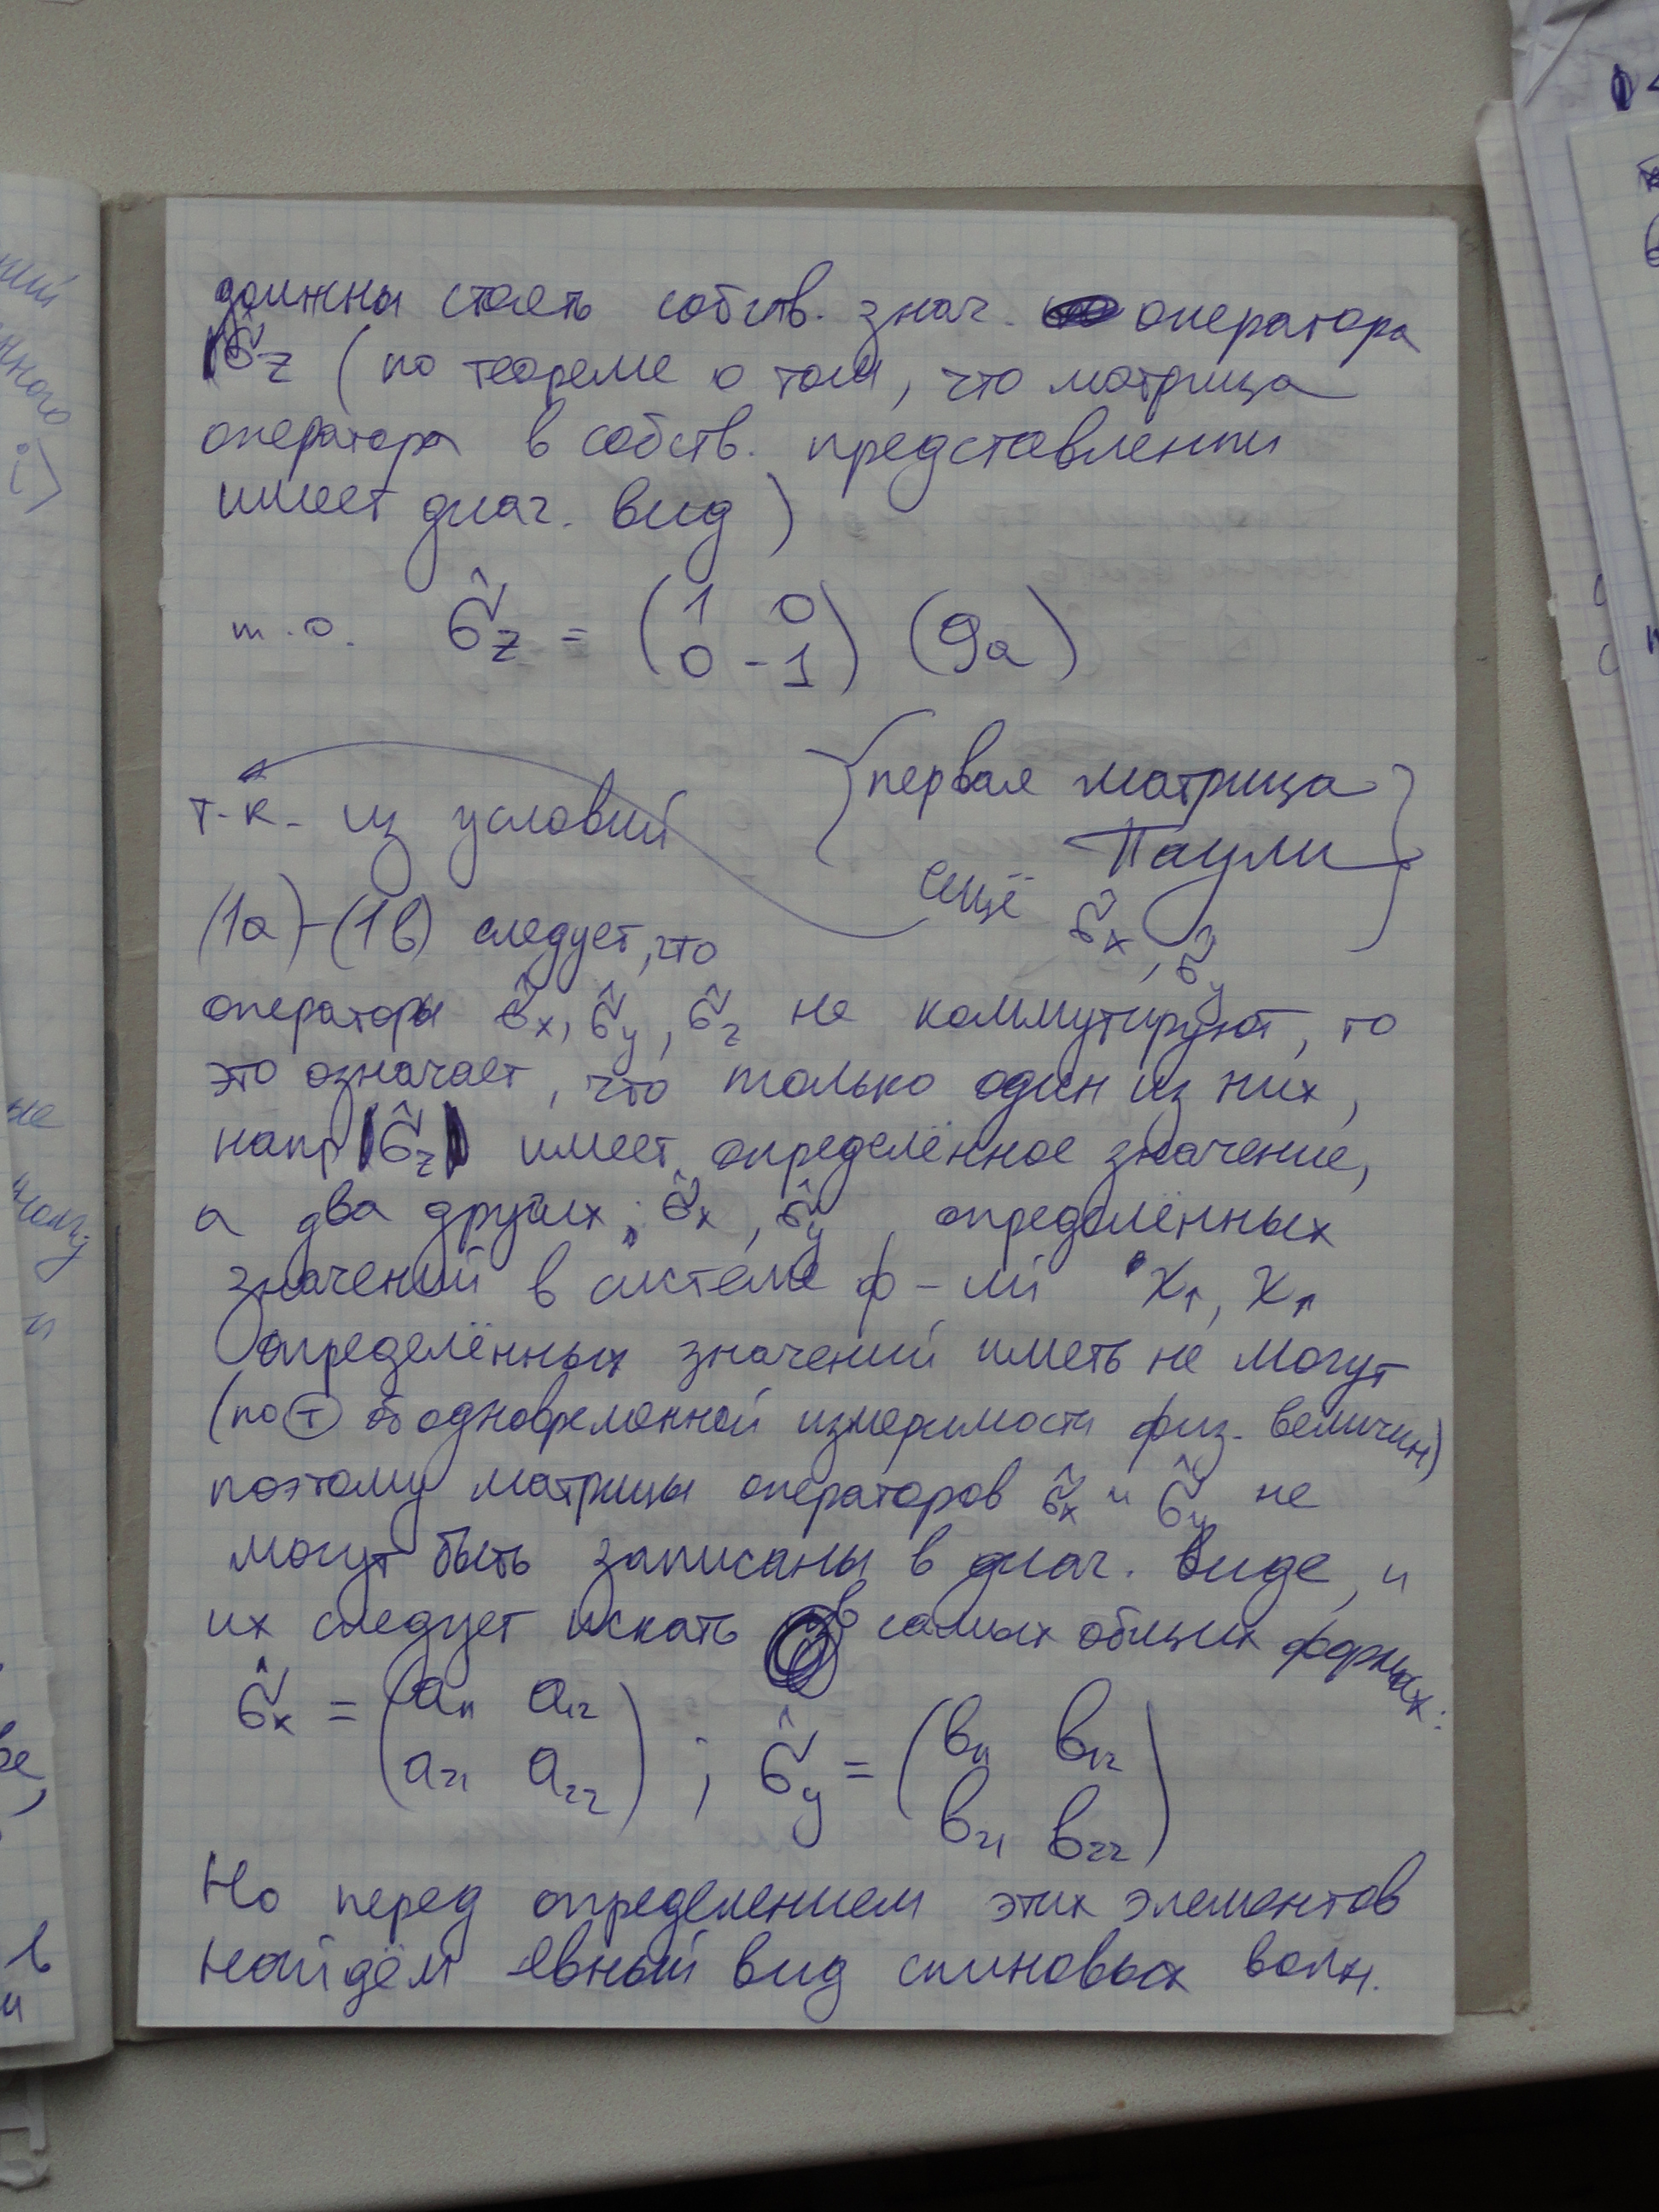 должны стоять собств. знач. оператора
σ̂z (по теореме о том, что матрица
оператора в собств. представлении
имеет диаг. вид)
т.о. σ̂z = (1 0
0 -1) (9a)
{первая матрица
Паули
ещё σ̂x, σ̂y}
т.к. из условий
(1а)-(1в) следует, что
операторы σ̂x, σ̂y, σ̂z не коммутируют, то
это означает, что только один из них,
напр σ̂z имеет определённое значение,
а два других, σ̂x, σ̂y, определённых
значений в системе ф-ий χ↑, χ↑
определённых значений иметь не могут
(по Т об одновременной измеримости физ. величин)
поэтому матрицы операторов σ̂x и σ̂y не
могут быть записаны в диаг. виде, и
их следует искать в самых общих формах:
σ̂x = (a11 a12
a21 a22) ; σ̂y = (в11 в12
в21 в22)
Но перед определением этих элементов
найдём явный вид спиновых волн.